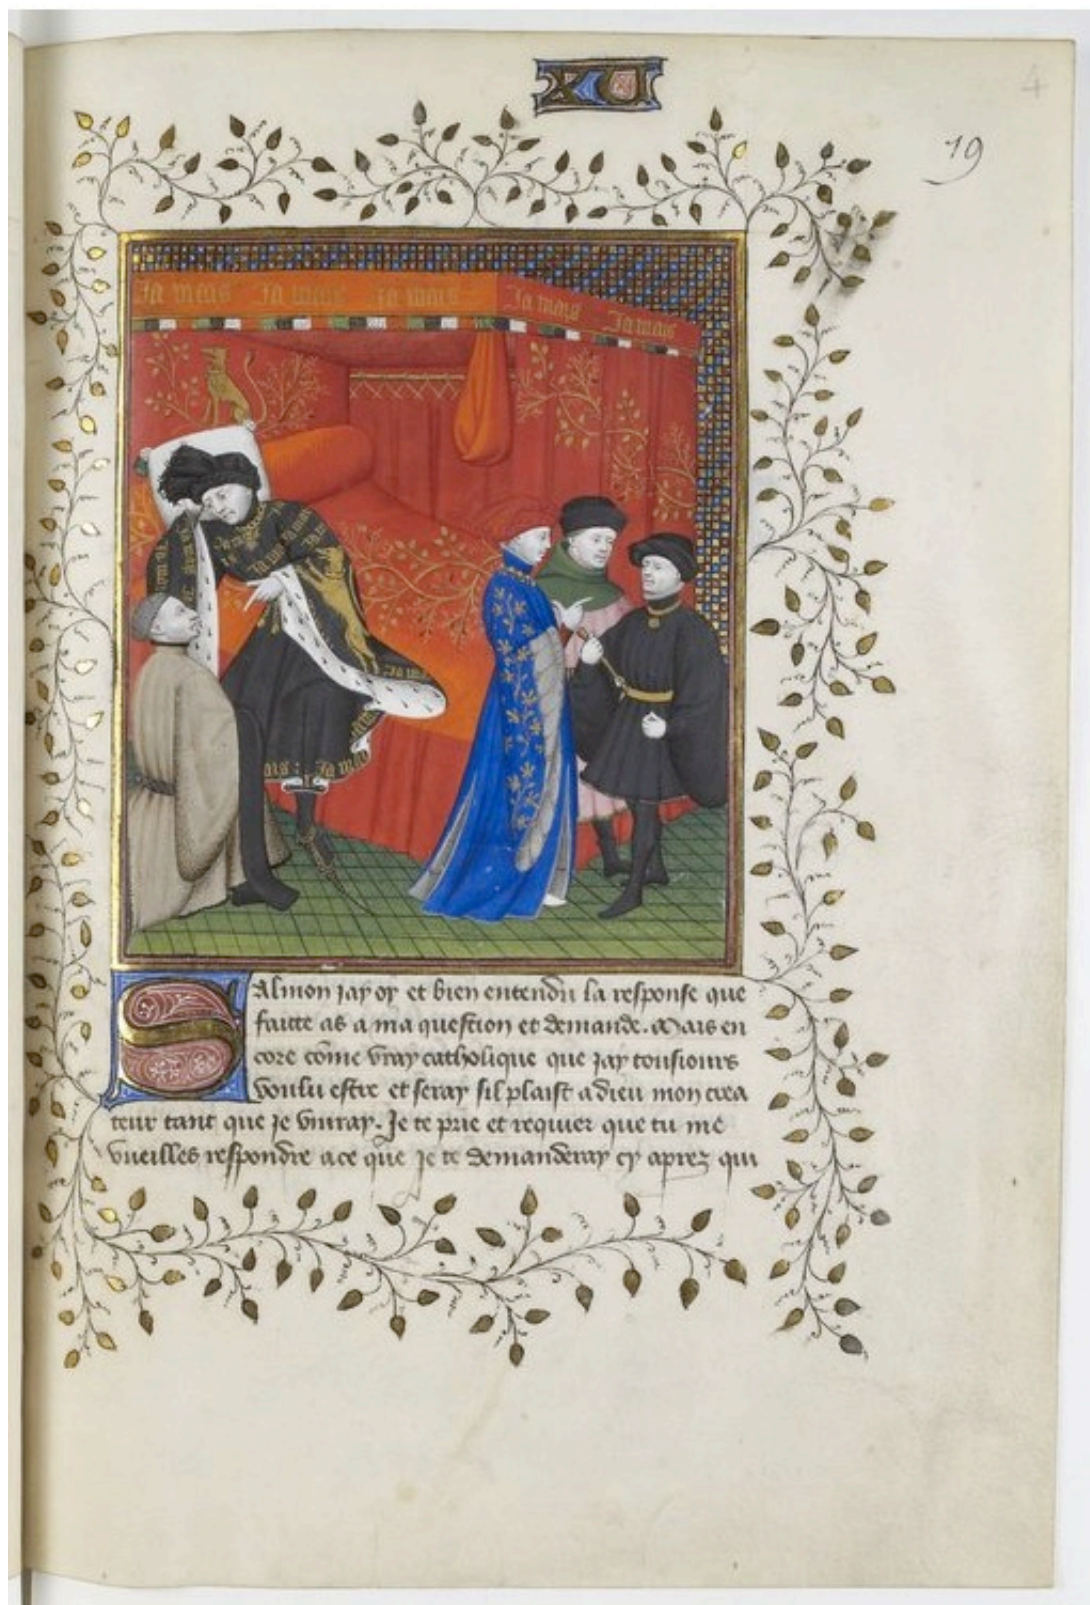 xv
4
19
Ja mais Ja mais Ja mais Ja mais Ja mais
Salmon jay oy et bien entendu la response que
faitte as a ma question et demande. Mais en
core cōme vray catholique que jay tousiours
voulu estre et seray sil plaist a dieu mon crea
teur tant que je vivray. Je te prie et requier que tu me
vueilles respondre a ce que je te demanderay cy aprez qui